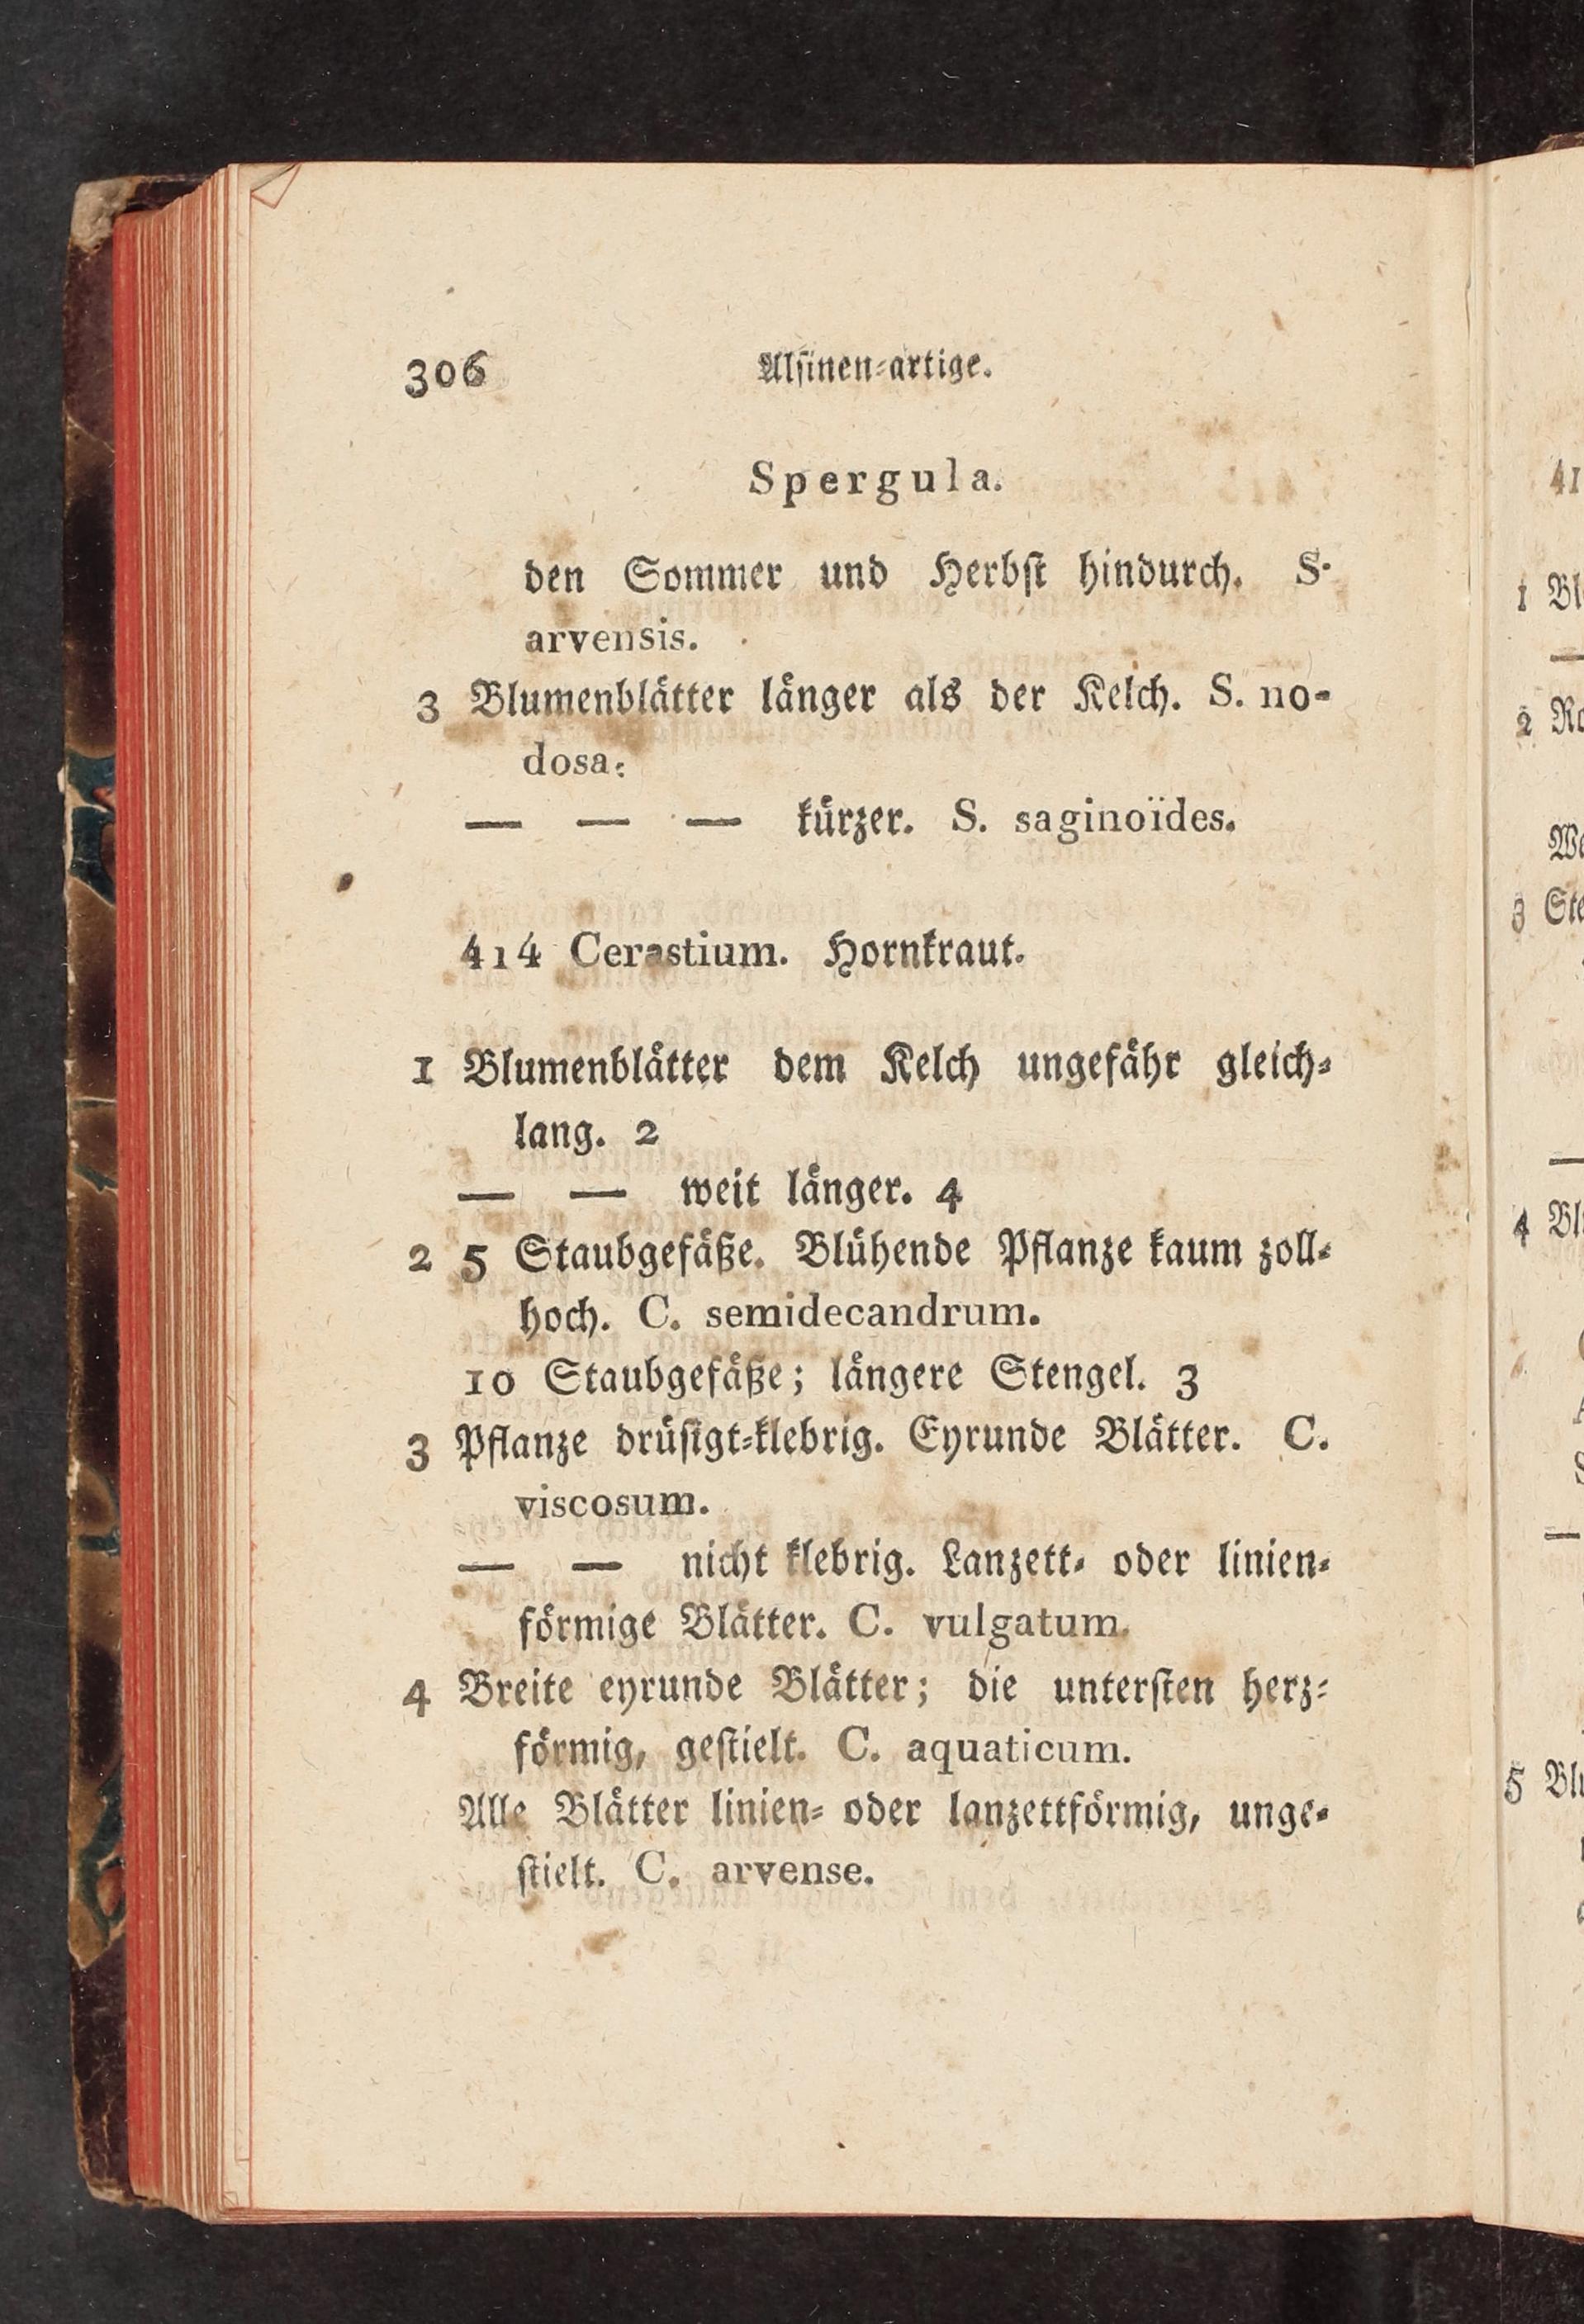 306 Alsinen-artige.
Spergula.
den Sommer und Herbst hindurch. S.
arvensis.
3 Blumenblätter länger als der Kelch. S. no-
dosa.
— — — kürzer. S. saginoïdes.
414 Cerastium. Hornkraut.
1 Blumenblätter dem Kelch ungefähr gleich-
lang. 2
— — weit länger. 4
2 5 Staubgefäße. Blühende Pflanze kaum zoll-
hoch. C. semidecandrum.
10 Staubgefäße; längere Stengel. 3
3 Pflanze drüsigt-klebrig. Eyrunde Blätter. C.
viscosum.
— — nicht klebrig. Lanzett- oder linien-
förmige Blätter. C. vulgatum.
4 Breite eyrunde Blätter; die untersten herz-
förmig, gestielt. C. aquaticum.
Alle Blätter linien- oder lanzettförmig, unge-
stielt. C. arvense.